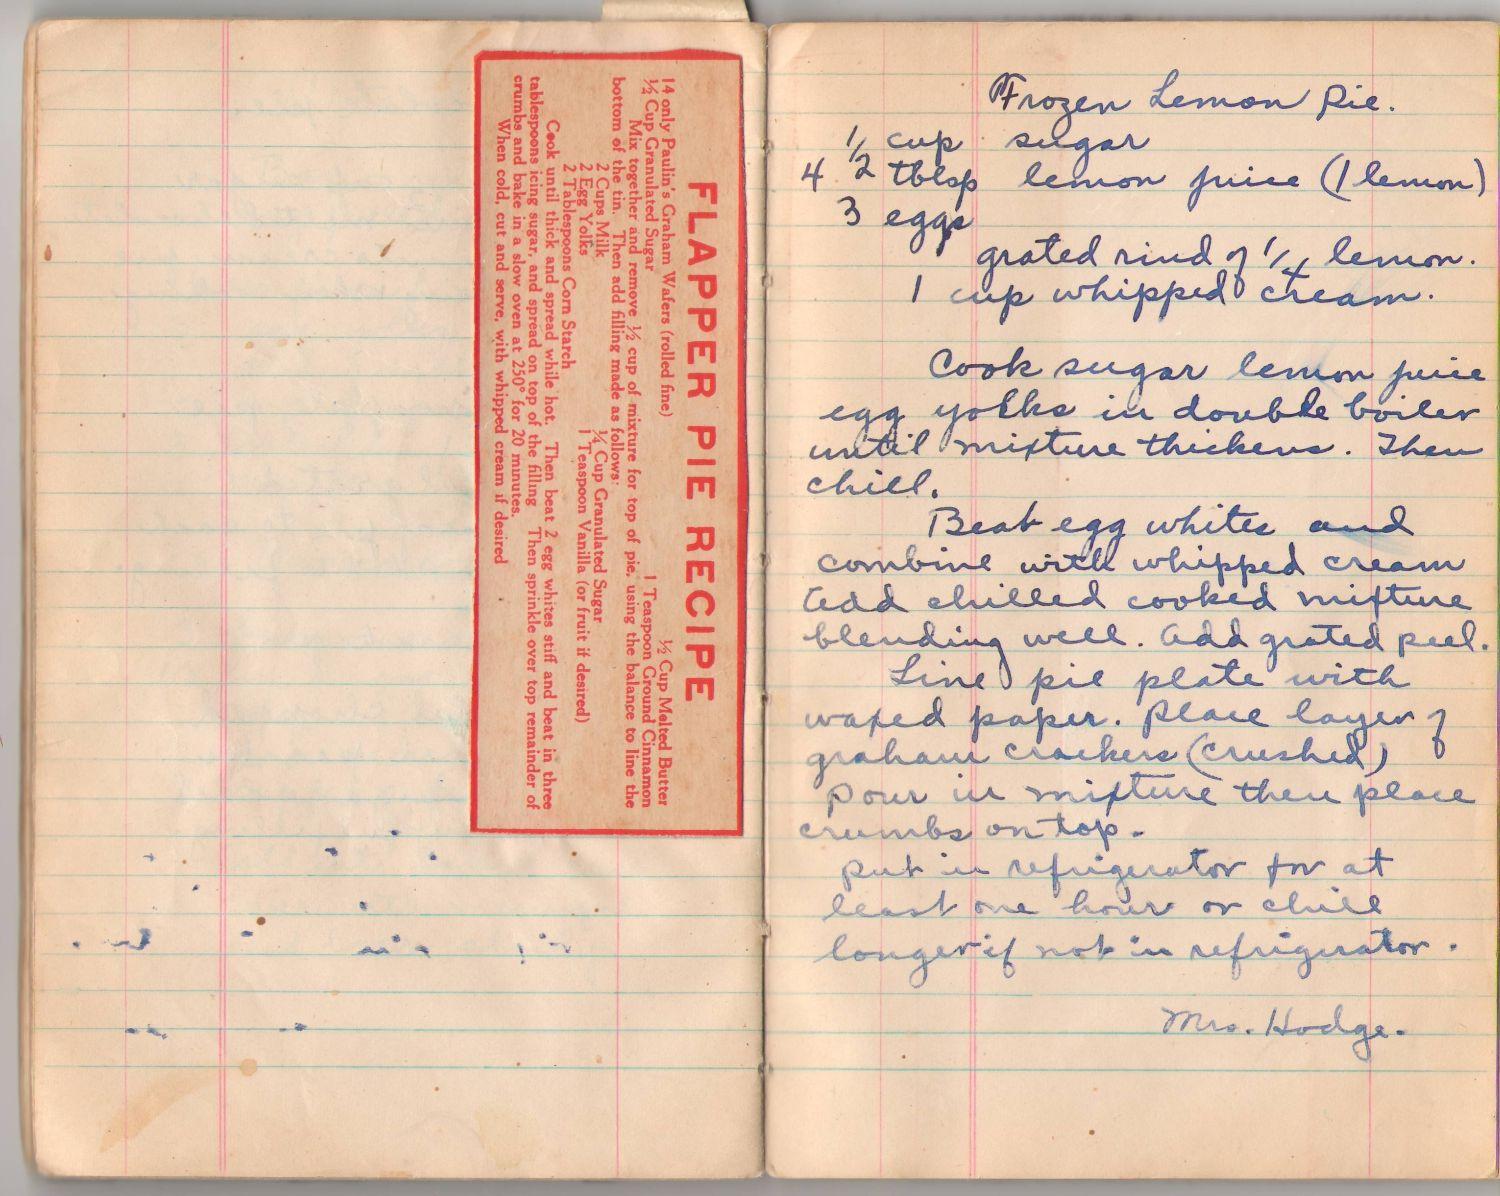 FLAPPER PIE RECIPE
14 only Paulin's Graham Wafers (rolled fine) ½ Cup Melted Butter
½ Cup Granulated Sugar 1 Teaspoon Ground Cinnamon
Mix together and remove ½ cup of mixture for top of pie, using the balance to line the
bottom of the tin. Then add filling made as follows:
2 Cups Milk ¼ Cup Granulated Sugar
2 Egg Yolks 1 Teaspoon Vanilla (or fruit if desired)
2 Tablespoons Corn Starch
Cook until thick and spread while hot. Then beat 2 egg whites stiff and beat in three
tablespoons icing sugar, and spread on top of the filling Then sprinkle over top remainder of
crumbs and bake in a slow oven at 250° for 20 minutes.
When cold, cut and serve, with whipped cream if desired
Frozen Lemon Pie.
1/2 cup sugar
4 tblsp lemon juice (1 lemon)
3 eggs
grated rind of 1/4 lemon.
1 cup whipped cream.
Cook sugar lemon juice
egg yolks in double boiler
until mixture thickens. Then
chill.
Beat egg whites and
combine with whipped cream
Add chilled cooked mixture
blending well. Add grated peel.
Line pie plate with
waxed paper. Place layer of
graham crackers (crushed)
pour in mixture then place
crumbs on top.
Put in refrigerator for at
least one hour or chill
longer if not in refrigerator.
Mrs. Hodge.